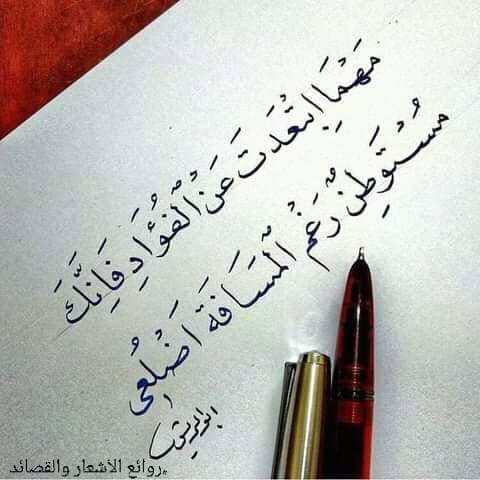 مَهْمَا ابْتَعَدْتَ عَنْ الْفُؤَادِ فَإِنَّكَ
مُسْتَوْطِنٌ رَغْمَ الْمَسَافَةِ اَضْلُعِى
روائع الأشعار والقصائد